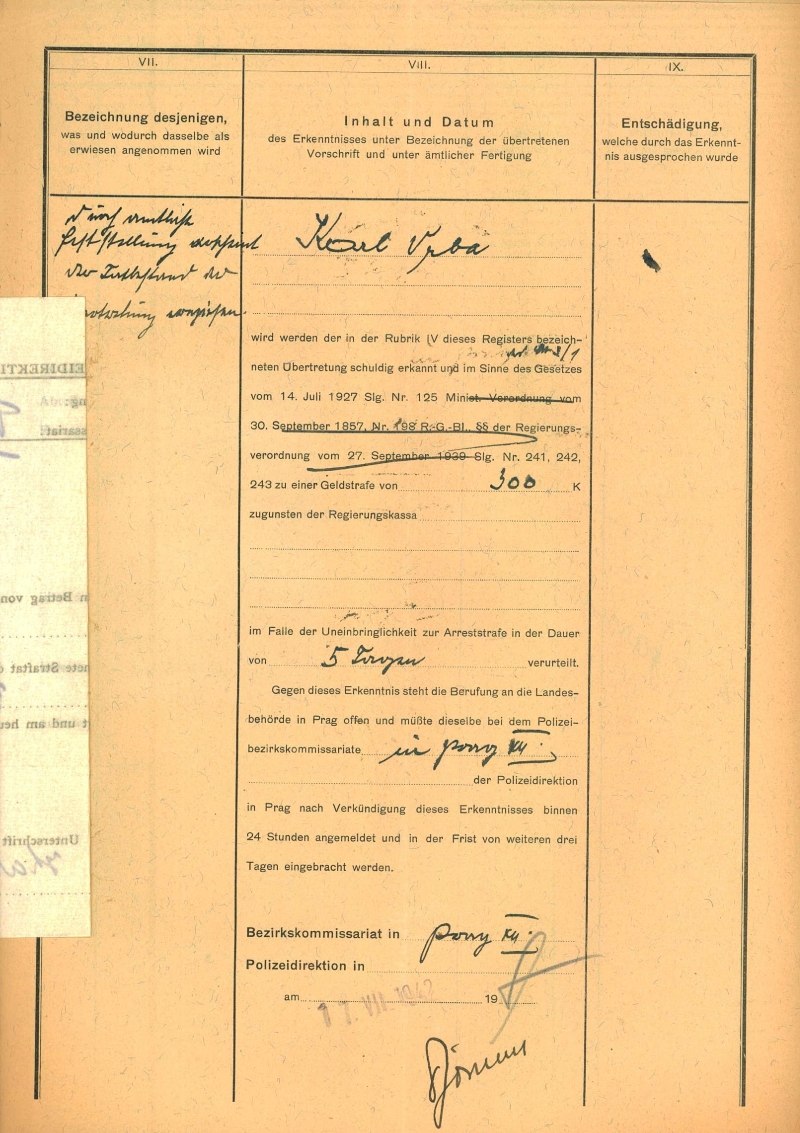 VII.
Bezeichnung desjenigen,
was und wodurch dasselbe als
erwiesen angenommen wird
durch amtliche
Feststellung erscheint
der Tatbestand der
Übertretung erwiesen.
VIII.
Inhalt und Datum
des Erkenntnisses unter Bezeichnung der übertretenen
Vorschrift und unter ämtlicher Fertigung
Karl Vrba
wird werden der in der Rubrik IV dieses Registers bezeich-
neten Übertretung schuldig erkannt und im Sinne des Gesetzes
vom 14. Juli 1927 Slg. Nr. 125 Minist.-Verordnung vom
30. September 1857, Nr. 198 R.-G.-Bl., §§ der Regierungs-
verordnung vom 27. September 1939 Slg. Nr. 241, 242,
243 zu einer Geldstrafe von 300 K
zugunsten der Regierungskassa
im Falle der Uneinbringlichkeit zur Arreststrafe in der Dauer
von 5 Tagen verurteilt.
Gegen dieses Erkenntnis steht die Berufung an die Landes-
behörde in Prag offen und müßte dieselbe bei dem Polizei-
bezirkskommissariate in Prag XII.
der Polizeidirektion
in Prag nach Verkündigung dieses Erkenntnisses binnen
24 Stunden angemeldet und in der Frist von weiteren drei
Tagen eingebracht werden.
Bezirkskommissariat in Prag XII.
Polizeidirektion in
am 17. VII. 1942 19
IX.
Entschädigung,
welche durch das Erkennt-
nis ausgesprochen wurde
EIDIREKTI
ng:
ssariat:
n Betrag von
nete Straftat
t und am heu
Unterschrift